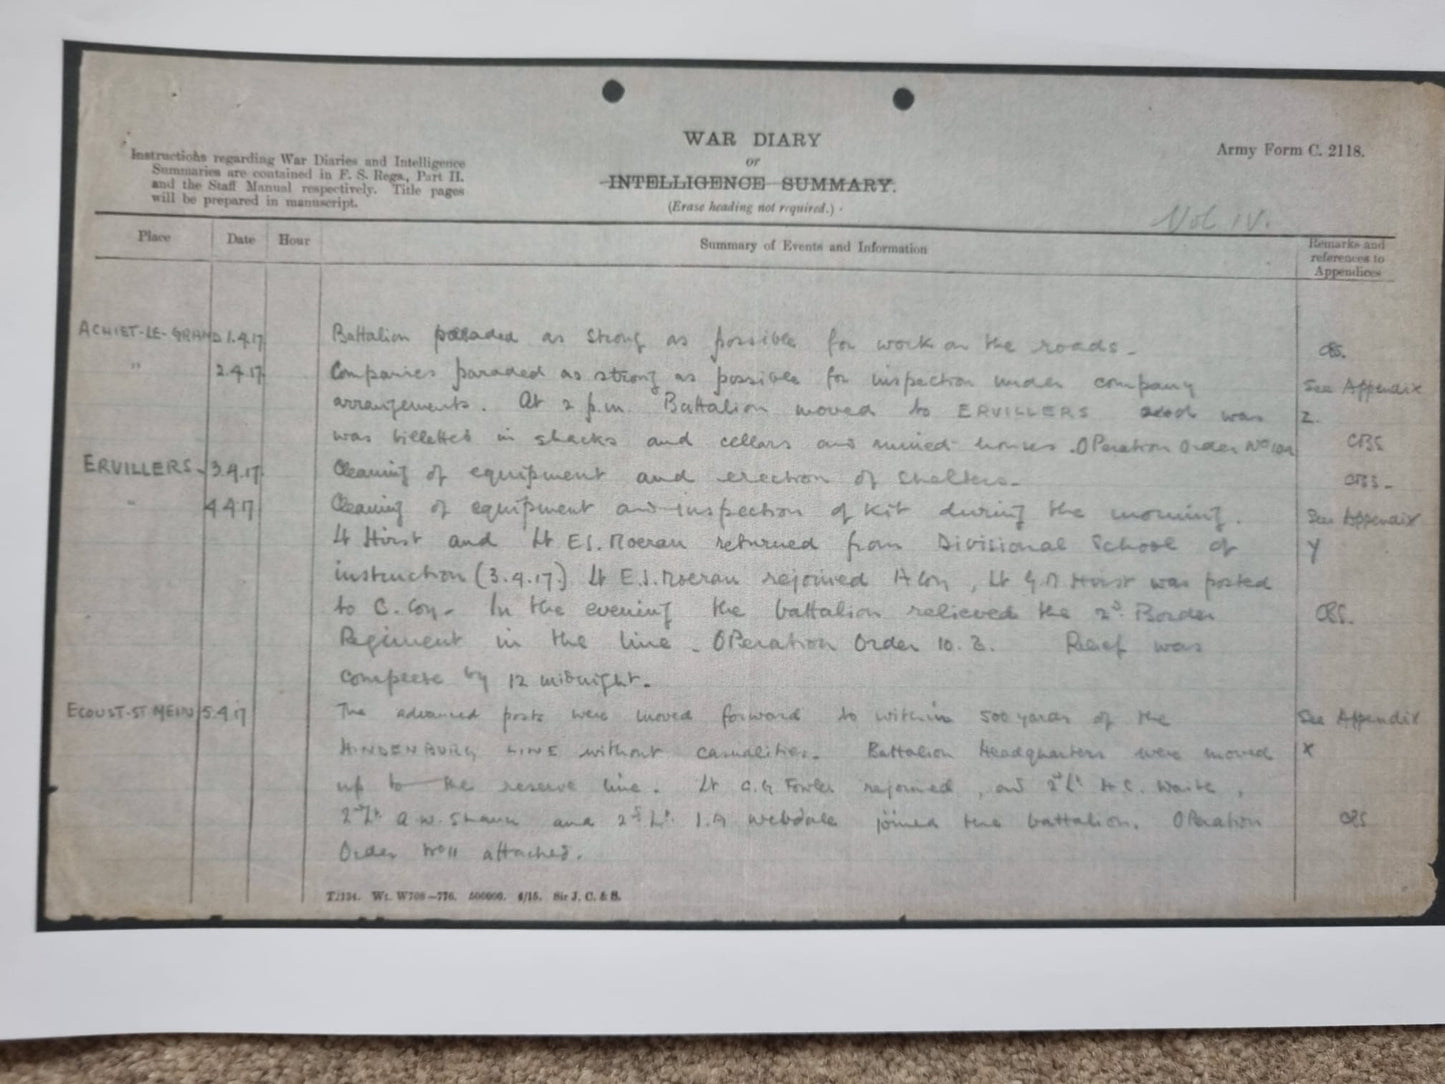 WAR DIARY
or
INTELLIGENCE SUMMARY.
(Erase heading not required.)
Army Form C. 2118.
Instructions regarding War Diaries and Intelligence
Summaries are contained in F. S. Regs., Part II.
and the Staff Manual respectively. Title pages
will be prepared in manuscript.
Vol IV.
Place Date Hour Summary of Events and Information Remarks and
references to
Appendices
ACHIET-LE-GRAND 1.4.17 Battalion paraded as strong as possible for work on the roads.
" 2.4.17 Companies paraded as strong as possible for inspection under company See Appendix
arrangements. At 2 p.m. Battalion moved to ERVILLERS and was Z.
was billetted in shacks and cellars and ruined houses. Operation Order No 10A
ERVILLERS. 3.4.17 Cleaning of equipment and erection of shelters.
" 4.4.17 Cleaning of equipment and inspection of kit during the morning. See Appendix
Lt Hirst and Lt E.S. Moeran returned from Divisional School of Y
instruction (3.4.17). Lt E.S. Moeran rejoined A Coy, Lt G M Hirst was posted
to C. Coy. In the evening the battalion relieved the 2d. Border
Regiment in the line. Operation Order 10.B. Relief was
complete by 12 midnight.
ECOUST-ST MEIN 5.4.17 The advanced posts were moved forward to within 500 yards of the See Appendix
HINDENBURG LINE without casualities. Battalion Headquarters were moved X
up to the reserve line. Lt C.G Fowler rejoined, and 2d Lt H.C. Waite,
2d Lt. A.W. Shawn and 2d Lt. I.A Webdale joined the battalion. Operation
Order No 11 attached.
Wt. W708—776. 500000. 4/15. Sir J. C. & S.